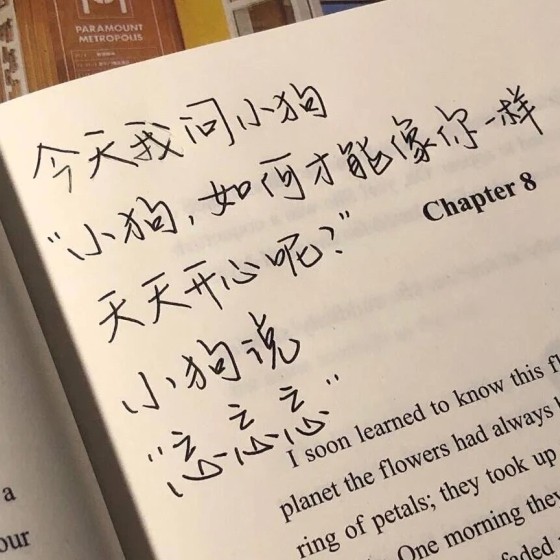 PARAMOUNT
METROPOLIS
今天我问小狗
“小狗,如何才能像你一样
天天开心呢?”
小狗说
“忘忘忘”
Chapter 8
I soon learned to know this fl
planet the flowers had always
ring of petals; they took up
One morning they
faded
a
our